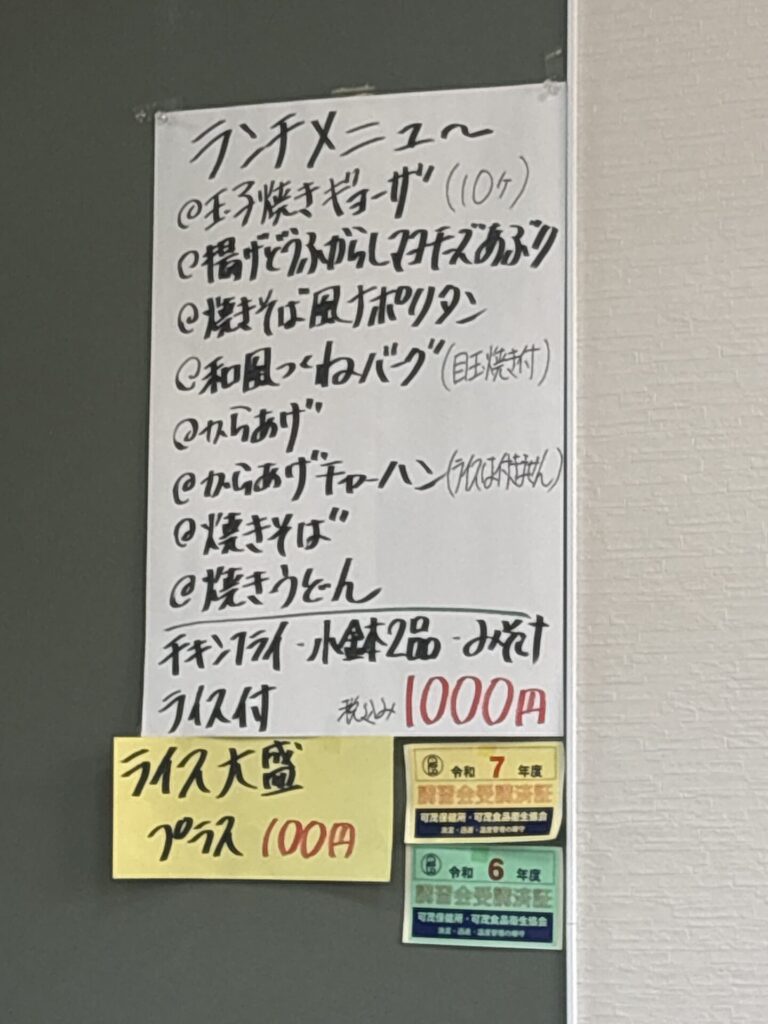 ランチメニュ〜
@玉子焼きギョーザ(10ケ)
@揚げどうふからしマヨチーズあぶり
@焼きそば風ナポリタン
@和風つくねバーグ(目玉焼き付)
@からあげ
@からあげチャーハン(ライスは付きません)
@焼きそば
@焼きうどーん
チキンフライ-小鉢2品-みそ汁
ライス付 税込み 1000円
ライス大盛
プラス 100円
令和 7 年度
講習会受講済証
可茂保健所・可茂食品衛生協会
令和 6 年度
講習会受講済証
可茂保健所・可茂食品衛生協会